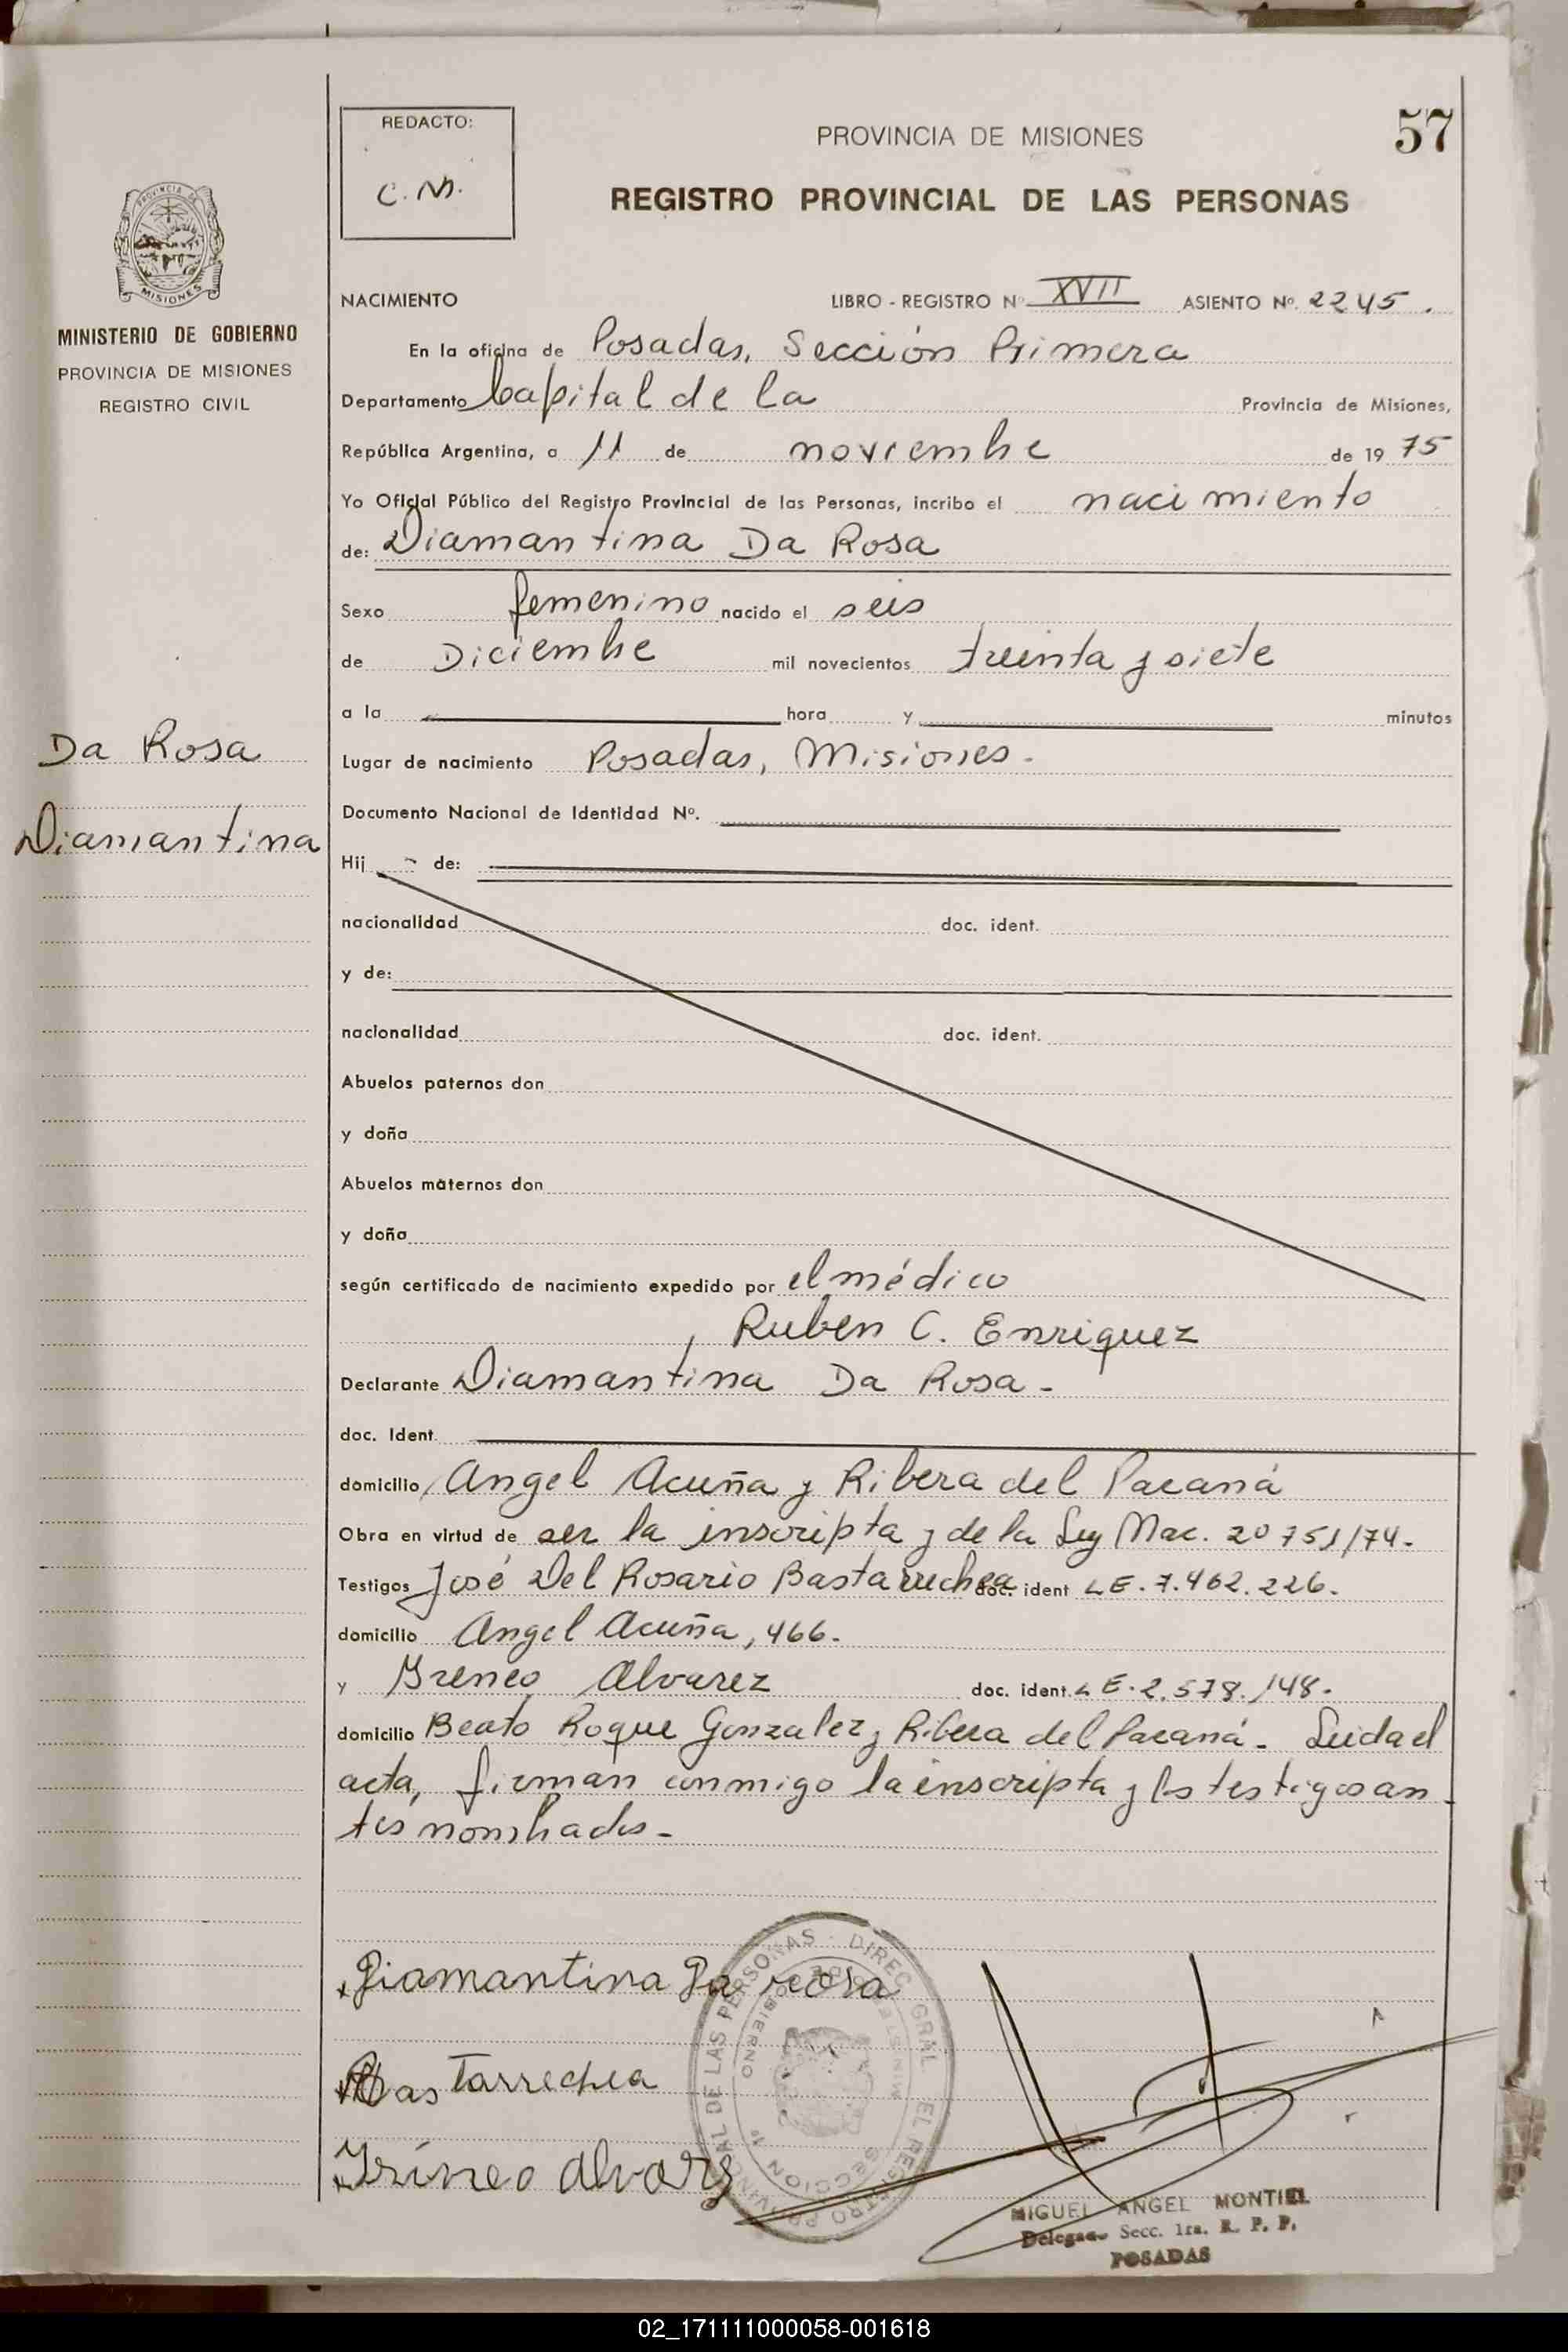 REDACTO:
C. M.
PROVINCIA DE MISIONES
57
REGISTRO PROVINCIAL DE LAS PERSONAS
PROVINCIA DE
MISIONES
MINISTERIO DE GOBIERNO
PROVINCIA DE MISIONES
REGISTRO CIVIL
NACIMIENTO LIBRO - REGISTRO Nº XVII ASIENTO Nº. 2245.
En la oficina de Posadas, Sección Primera
Departamento Capital de la Provincia de Misiones,
República Argentina, a 11 de noviembre de 19 75
Yo Oficial Público del Registro Provincial de las Personas, incribo el nacimiento
de: Diamantina Da Rosa
Sexo femenino nacido el seis
de Diciembre mil novecientos treinta y siete
a la hora y minutos
Da Rosa
Diamantina
Lugar de nacimiento Posadas, Misiones.
Documento Nacional de Identidad Nº.
Hij de:
nacionalidad doc. ident.
y de:
nacionalidad doc. ident.
Abuelos paternos don
y doña
Abuelos maternos don
y doña
según certificado de nacimiento expedido por el médico
Ruben C. Enriquez
Declarante Diamantina Da Rosa -
doc. Ident.
domicilio Angel Acuña y Ribera del Paraná
Obra en virtud de ser la inscripta y de la Ley Nac. 20751/74.
Testigos José Del Rosario Bastarrechea doc. ident LE. 7.462.226.
domicilio Angel Acuña, 466.
y Ireneo Alvarez doc. ident. LE. 2.578.148.
domicilio Beato Roque Gonzalez y Ribera del Paraná. Leida el
acta, firman conmigo la inscripta y los testigos an-
tes nombrados -
Diamantina Da rosa
Bastarrechea
Irineo Alvarz
DIREC. GRAL. EL REGISTRO PROVINCIAL DE LAS PERSONAS
MINISTERIO DE GOBIERNO
SECCION 1ª
MIGUEL ANGEL MONTIEL
Delegado Secc. 1ra. R. P. P.
POSADAS
02_171111000058-001618